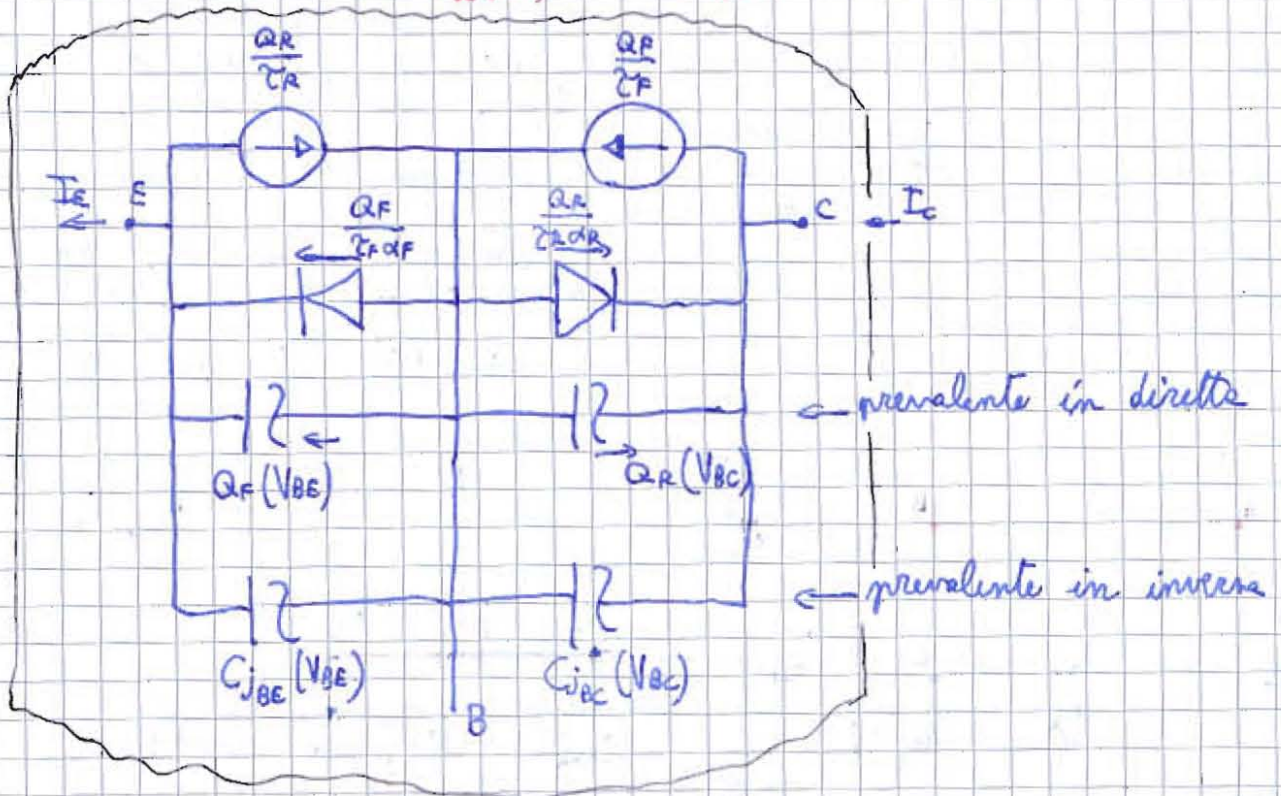 QR/τR
QF/τF
IE E
C IC
QF/τFαF
QR/τRαR
prevalente in diretta
QF(VBE)
QR(VBC)
prevalente in inversa
CjBE(VBE)
CjBC(VBC)
B